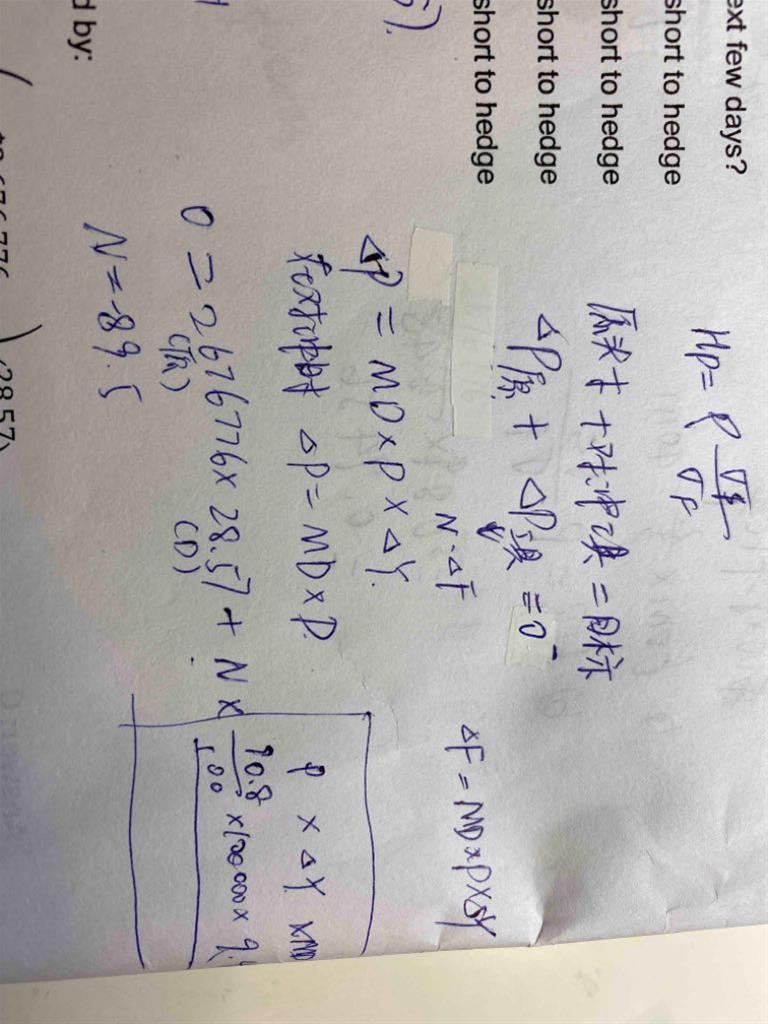 ext few days?
short to hedge
short to hedge
short to hedge
short to hedge
d by:
Hp = ρ σs/σF
原头寸 + 对冲工具 = 目标
ΔP原 + ΔP工具 = 0
N·ΔF
ΔF = MD×P×ΔY
ΔP = MD×P×ΔY
ΔP = MD×P
P × ΔY ×MD
0 = 2676776 × 28.57 + N × 90.8/100 × 100000 × 9.
(原) (D)
N = -89.5